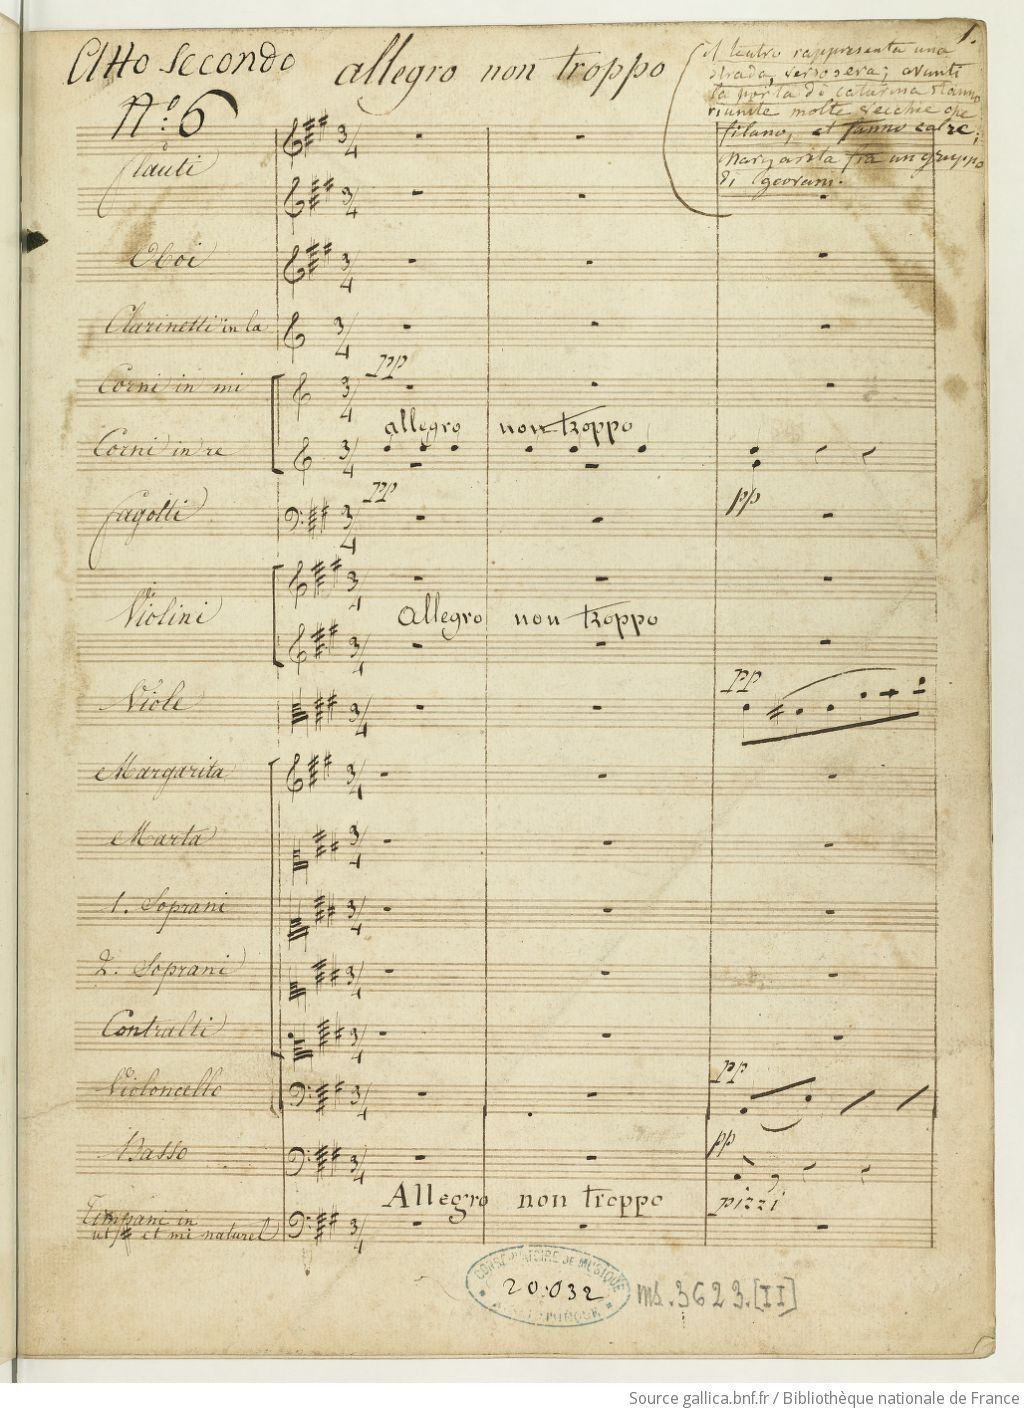 Atto Secondo
allegro non troppo
1.
il teatro rappresenta una
strada, verso sera; avanti
la porta di catarina stanno
riunite molte vecchie che
filano, et fanno calze;
Margarita fra un gruppo
di giovani.
N.o 6
Flauti
Oboi
Clarinetti in la
pp
Corni in mi
allegro non troppo
Corni in re
pp
pp
Fagotti
Violini
allegro non troppo
pp
Viole
Margarita
Marta
1. Soprani
2. Soprani
Contralti
pp
Violoncello
pp
Basso
Allegro non troppo
pizzi
Timpani in
ut# et mi naturel
CONSERVATOIRE DE MUSIQUE
20.032
BIBLIOTHEQUE
ms. 3623.[II]
Source gallica.bnf.fr / Bibliothèque nationale de France